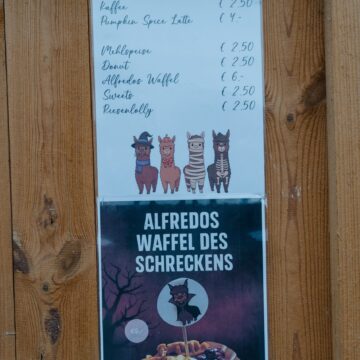 Kaffee € 2,50
Pumpkin Spice Latte € 4,-
Mehlspeise € 2,50
Donut € 2,50
Alfredos Waffel € 6,-
Sweets € 2,50
Riesenlolly € 2,50
ALFREDOS
WAFFEL DES
SCHRECKENS